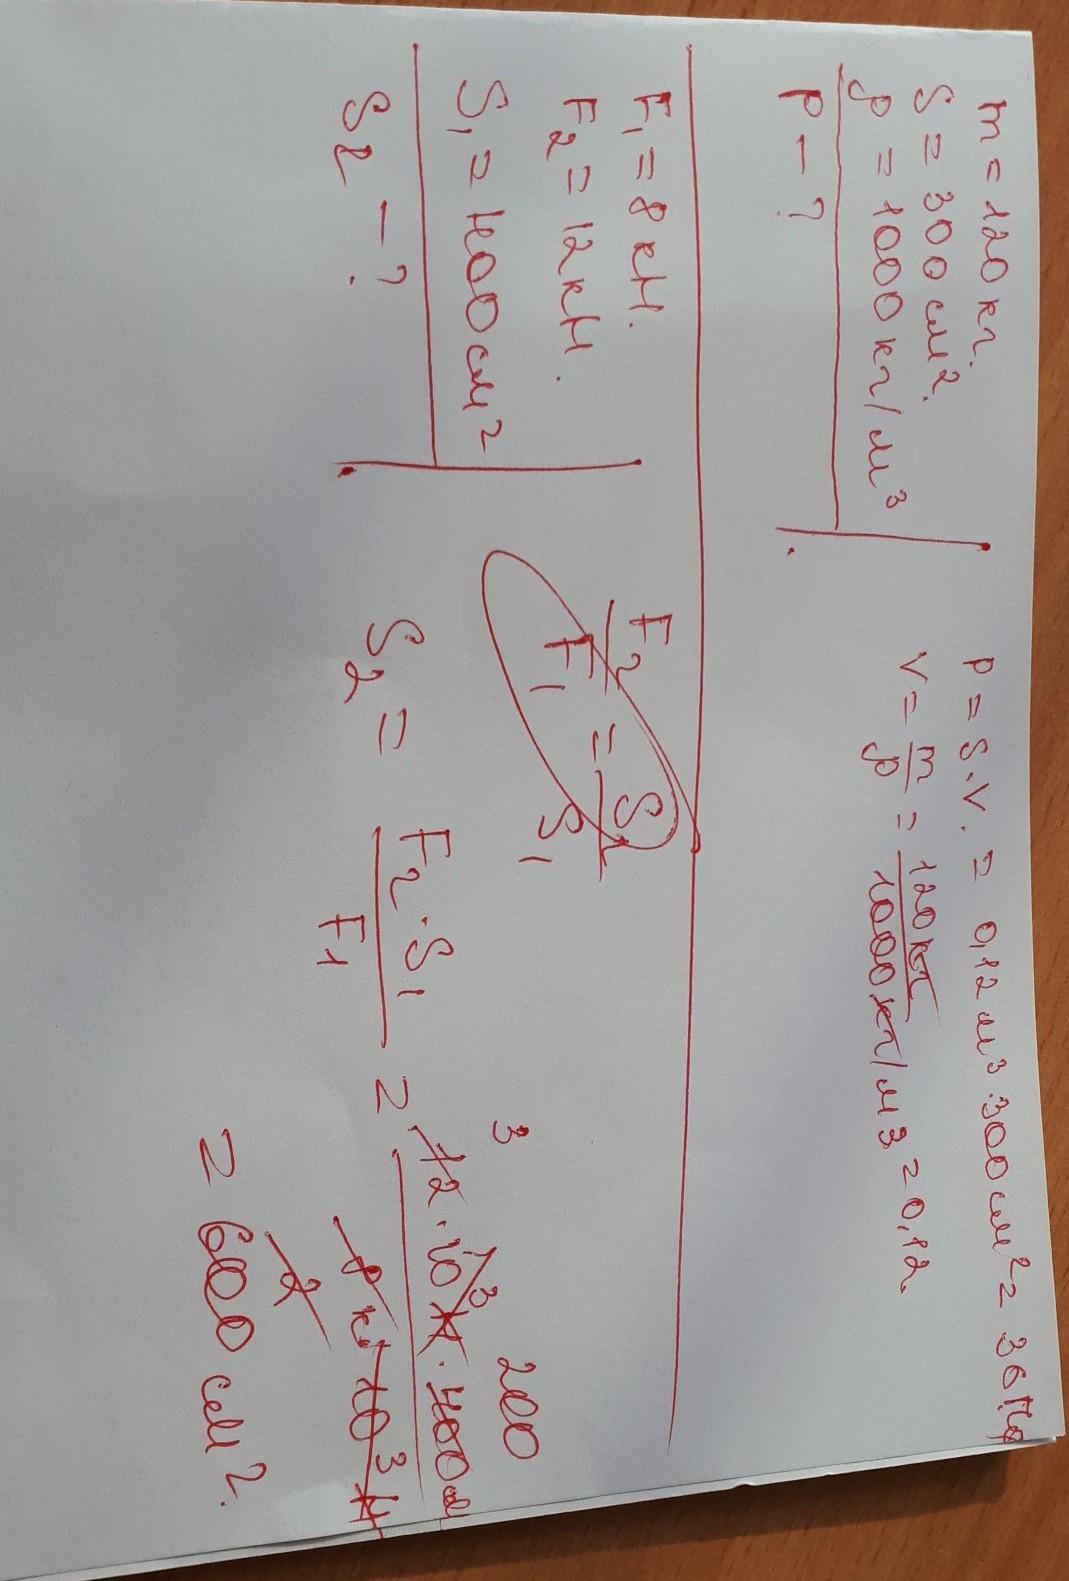 m = 120 кг.
S = 300 см².
ρ = 1000 кг/м³
P – ?
P = S·V. = 0,12 м³·300 см² = 36 Па
V = m/ρ = 120 кг/1000 кг/м3 = 0,12.
F₁ = 8 кН.
F₂ = 12 кН.
S₁ = 400 см²
S₂ – ?
F₂/F₁ = S₂/S₁
3 200
S₂ = F₂·S₁/F1 = 12·10³ Н·400 см/8 к·10³ Н
2
= 600 см².